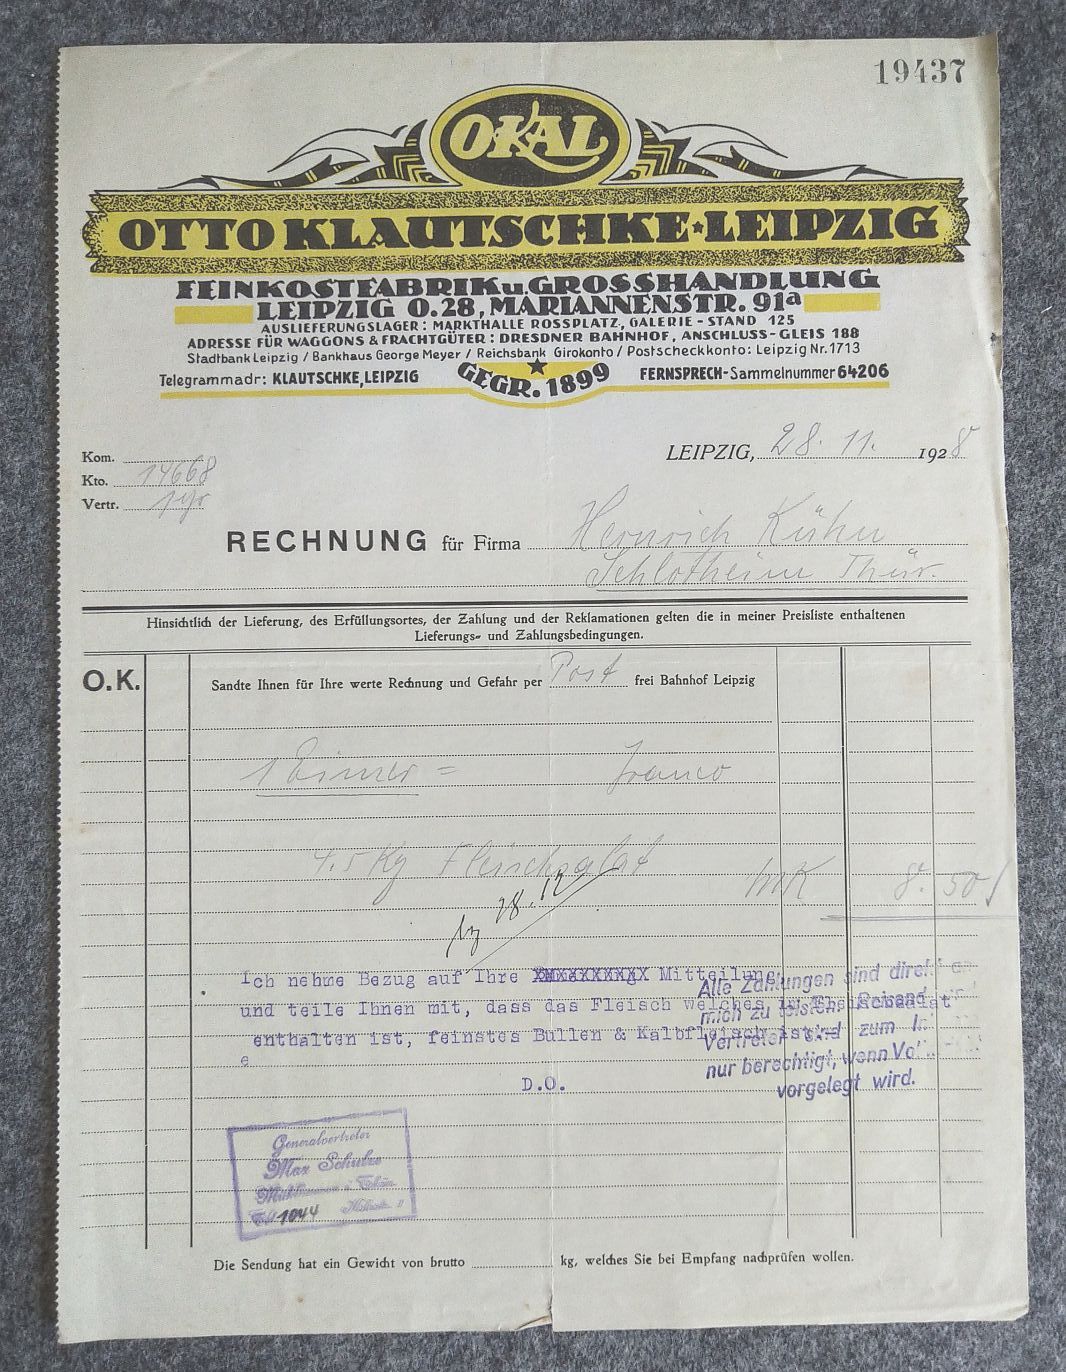 19437
OKAL
OTTO KLAUTSCHKE★LEIPZIG
FEINKOSTFABRIK u. GROSSHANDLUNG
LEIPZIG O.28, MARIANNENSTR. 91a
AUSLIEFERUNGSLAGER: MARKTHALLE ROSSPLATZ, GALERIE-STAND 125
ADRESSE FÜR WAGGONS & FRACHTGÜTER: DRESDNER BAHNHOF, ANSCHLUSS-GLEIS 188
Stadtbank Leipzig / Bankhaus George Meyer / Reichsbank Girokonto / Postscheckkonto: Leipzig Nr. 1713
Telegrammadr: KLAUTSCHKE, LEIPZIG ★ GEGR. 1899 FERNSPRECH-Sammelnummer 64206
LEIPZIG, 28. 11. 1928
Kom.
Kto. 14668
Vertr.
RECHNUNG für Firma Heinrich Kühn
Schlotheim Thür.
Hinsichtlich der Lieferung, des Erfüllungsortes, der Zahlung und der Reklamationen gelten die in meiner Preisliste enthaltenen
Lieferungs- und Zahlungsbedingungen.
O.K.
Sandte Ihnen für Ihre werte Rechnung und Gefahr per Post frei Bahnhof Leipzig
1 Eimer = franco
4.5 Kg Fleischsalat Mk 8. 50
28.12
Ich nehme Bezug auf Ihre Mitteilung
und teile Ihnen mit, dass das Fleisch welches im Fleischsalat
enthalten ist, feinstes Bullen & Kalbfleisch ist.
e
D.O.
Alle Zahlungen sind direkt an
mich zu leisten. Reisende und
Vertreter sind zum
nur berechtigt, wenn
vorgelegt wird.
Generalvertreter
Max Schulze
1044
Die Sendung hat ein Gewicht von brutto kg, welches Sie bei Empfang nachprüfen wollen.